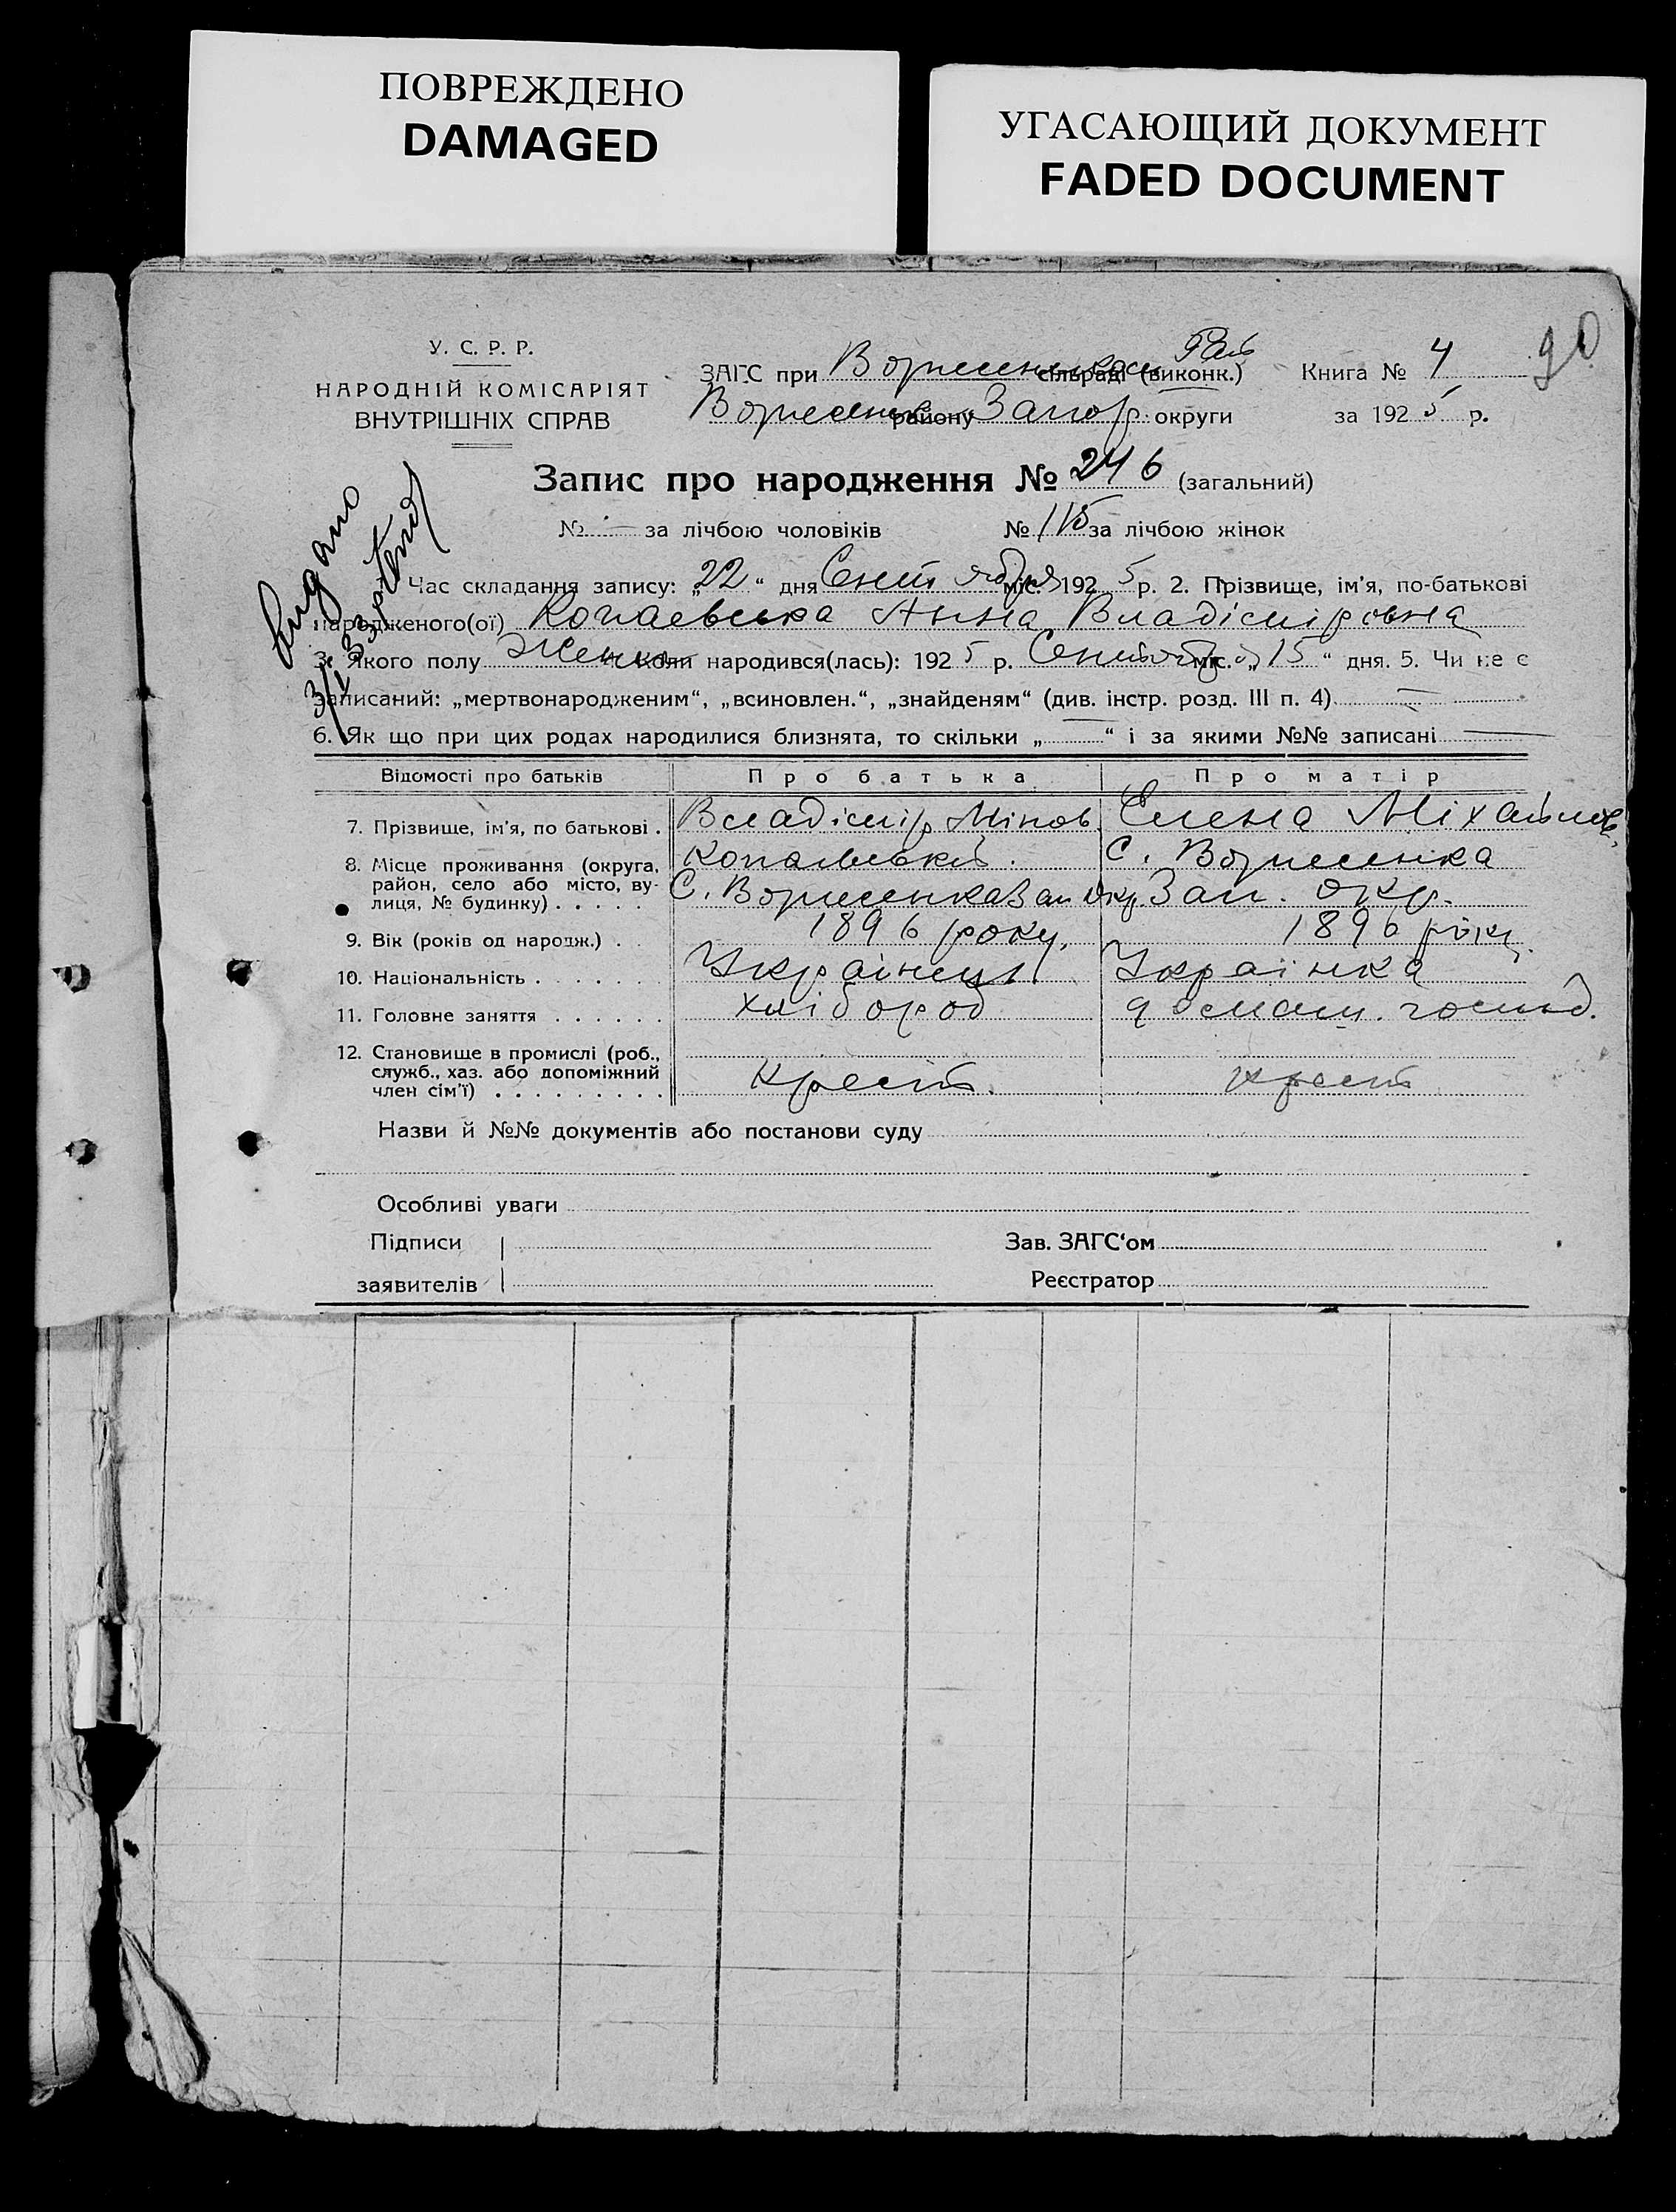 ПОВРЕЖДЕНО
DAMAGED
УГАСАЮЩИЙ ДОКУМЕНТ
FADED DOCUMENT
У. С. Р. Р.
НАРОДНІЙ КОМІСАРІЯТ
ВНУТРІШНІХ СПРАВ
ЗАГС при сільраді (виконк.)
району Запор. округи
Книга № 4
за 1925 р.
90
Запис про народження № 246 (загальний)
№ — за лічбою чоловіків № 115 за лічбою жінок
Час складання запису: „22“ дня Сентября міс. 1925 р. 2. Прізвище, ім’я, по-батькові
народженого(ої) Копаевська Анна Владіміровна
3. Якого полу Женск коли народився(лась): 1925 р. Сентября міс. „15“ дня. 5. Чи не є
записаний: „мертвонародженим“, „всиновлен.“, „знайденям“ (див. інстр. розд. III п. 4) —
6. Як що при цих родах народилися близнята, то скільки „—“ і за якими №№ записані —
Відомості про батьків Про батька Про матір
7. Прізвище, ім’я, по батькові . Владімір Мінов. Елена Міхайлов
8. Місце проживання (округа, район, село або місто, вулиця, № будинку) . . . . . Копаевський. С. Вознесенка Зап Окр С. Вознесенка Зап. Окр.
9. Вік (років од народж.) . . 1896 року. 1896 року.
10. Національність . . . . . . . Українець Українка
11. Головне заняття . . . . . . хлібороб домашн. господ.
12. Становище в промислі (роб., служб., хаз. або допоміжний член сім’ї) . . . . . . . . . Крест. Крест
Назви й №№ документів або постанови суду
Особливі уваги
Підписи
заявителів
Зав. ЗАГС‘ом
Реєстратор